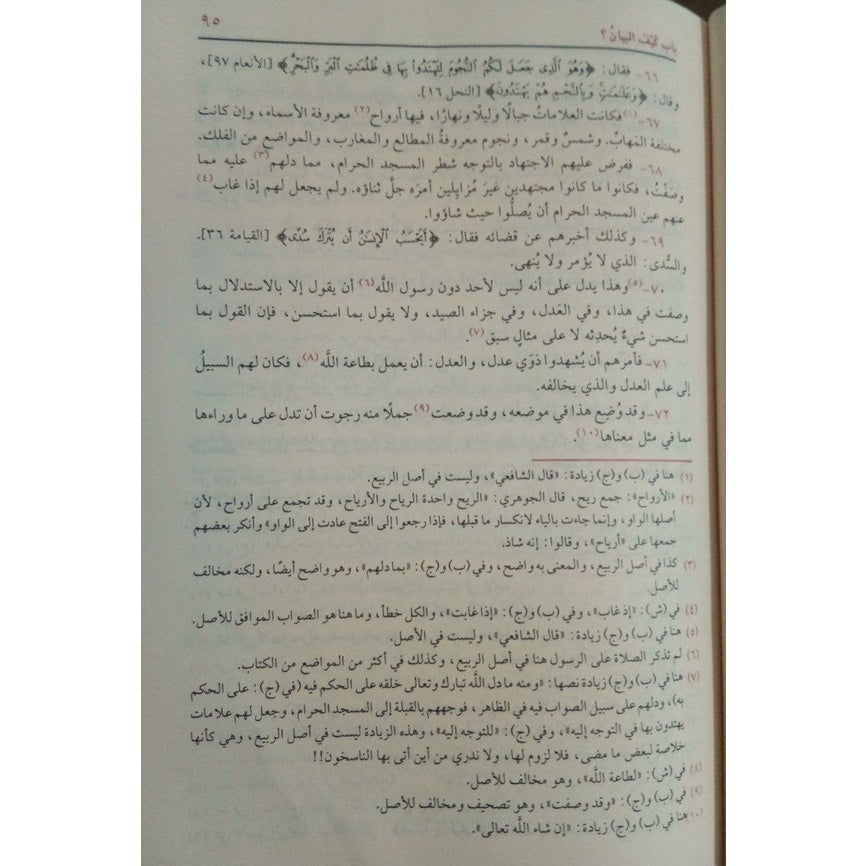 باب كَيْفَ البيانُ ؟
٩٥
٦٦- فقال: ﴿وَهُوَ ٱلَّذِى جَعَلَ لَكُمُ ٱلنُّجُومَ لِتَهْتَدُوا۟ بِهَا فِى ظُلُمَٰتِ ٱلْبَرِّ وَٱلْبَحْرِ﴾ [الأنعام ٩٧]،
وقال: ﴿وَعَلَٰمَٰتٍ وَبِٱلنَّجْمِ هُمْ يَهْتَدُونَ﴾ [النحل ١٦].
٦٧- (١)فكانت العلاماتُ جبالًا وليلًا ونهارًا، فيها أرواح(٢) معروفة الأسماء، وإن كانت
مختلفة المَهابِّ. وشمسٌ وقمر، ونجوم معروفةُ المطالع والمغارب، والمواضع من الفلك.
٦٨- ففرض عليهم الاجتهاد بالتوجه شطر المسجد الحرام، مما دلهم(٣) عليه مما
وصَفْتُ، فكانوا ما كانوا مجتهدين غيرَ مُزايِلين أمرَه جلَّ ثناؤه. ولم يجعل لهم إذا غاب(٤)
عنهم عين المسجد الحرام أن يُصلُّوا حيث شاؤوا.
٦٩- وكذلك أخبرهم عن قضائه فقال: ﴿أَيَحْسَبُ ٱلْإِنسَٰنُ أَن يُتْرَكَ سُدًى﴾ [القيامة ٣٦].
والسُّدى: الذي لا يُؤمر ولا يُنهى.
٧٠- (٥)وهذا يدل على أنه ليس لأحد دون رسول اللَّه(٦) أن يقول إلا بالاستدلال بما
وصفت في هذا، وفي العَدل، وفي جزاء الصيد، ولا يقول بما استحسن، فإن القول بما
استحسن شيءٌ يُحدِثه لا على مثالٍ سبق(٧).
٧١- فأمرهم أن يُشهدوا ذوَي عدل، والعدل: أن يعمل بطاعة اللَّه(٨)، فكان لهم السبيلُ
إلى علم العدل والذي يخالفه.
٧٢- وقد وُضِع هذا في موضعه، وقد وضعت(٩) جملًا منه رجوت أن تدل على ما وراءها
مما في مثل معناها(١٠).
(١) هنا في (ب) و(ج) زيادة: «قال الشافعي»، وليست في أصل الربيع.
(٢) «الأرواح»: جمع ريح، قال الجوهري: «الريح واحدة الرياح والأرياح، وقد تجمع على أرواح، لأن
أصلها الواو، وإنما جاءت بالياء لانكسار ما قبلها، فإذا رجعوا إلى الفتح عادت إلى الواو» وأنكر بعضهم
جمعها على «أرياح»، وقالوا: إنه شاذ.
(٣) كذا في أصل الربيع، والمعنى به واضح، وفي (ب) و(ج): «بما دلهم»، وهو واضح أيضًا، ولكنه مخالف
للأصل.
(٤) في (ش): «إذ غاب»، وفي (ب) و(ج): «إذا غابت»، والكل خطأ، وما هنا هو الصواب الموافق للأصل.
(٥) هنا في (ب) و(ج) زيادة: «قال الشافعي»، وليست في الأصل.
(٦) لم تذكر الصلاة على الرسول هنا في أصل الربيع، وكذلك في أكثر من المواضع من الكتاب.
(٧) هنا في (ب) و(ج) زيادة نصها: «ومنه ما دل اللَّه تبارك وتعالى خلقه على الحكم فيه (في (ج): على الحكم
به)، ودلهم على سبيل الصواب فيه في الظاهر، فوجههم بالقبلة إلى المسجد الحرام، وجعل لهم علامات
يهتدون بها في التوجه إليه»، وفي (ج): «للتوجه إليه»، وهذه الزيادة ليست في أصل الربيع، وهي كأنها
خلاصة لبعض ما مضى، فلا لزوم لها، ولا ندري من أين أتى بها الناسخون!!
(٨) في (ش): «لطاعة اللَّه»، وهو مخالف للأصل.
(٩) في (ب) و(ج): «وقد وصفت»، وهو تصحيف ومخالف للأصل.
(١٠) هنا في (ب) و(ج) زيادة: «إن شاء اللَّه تعالى».